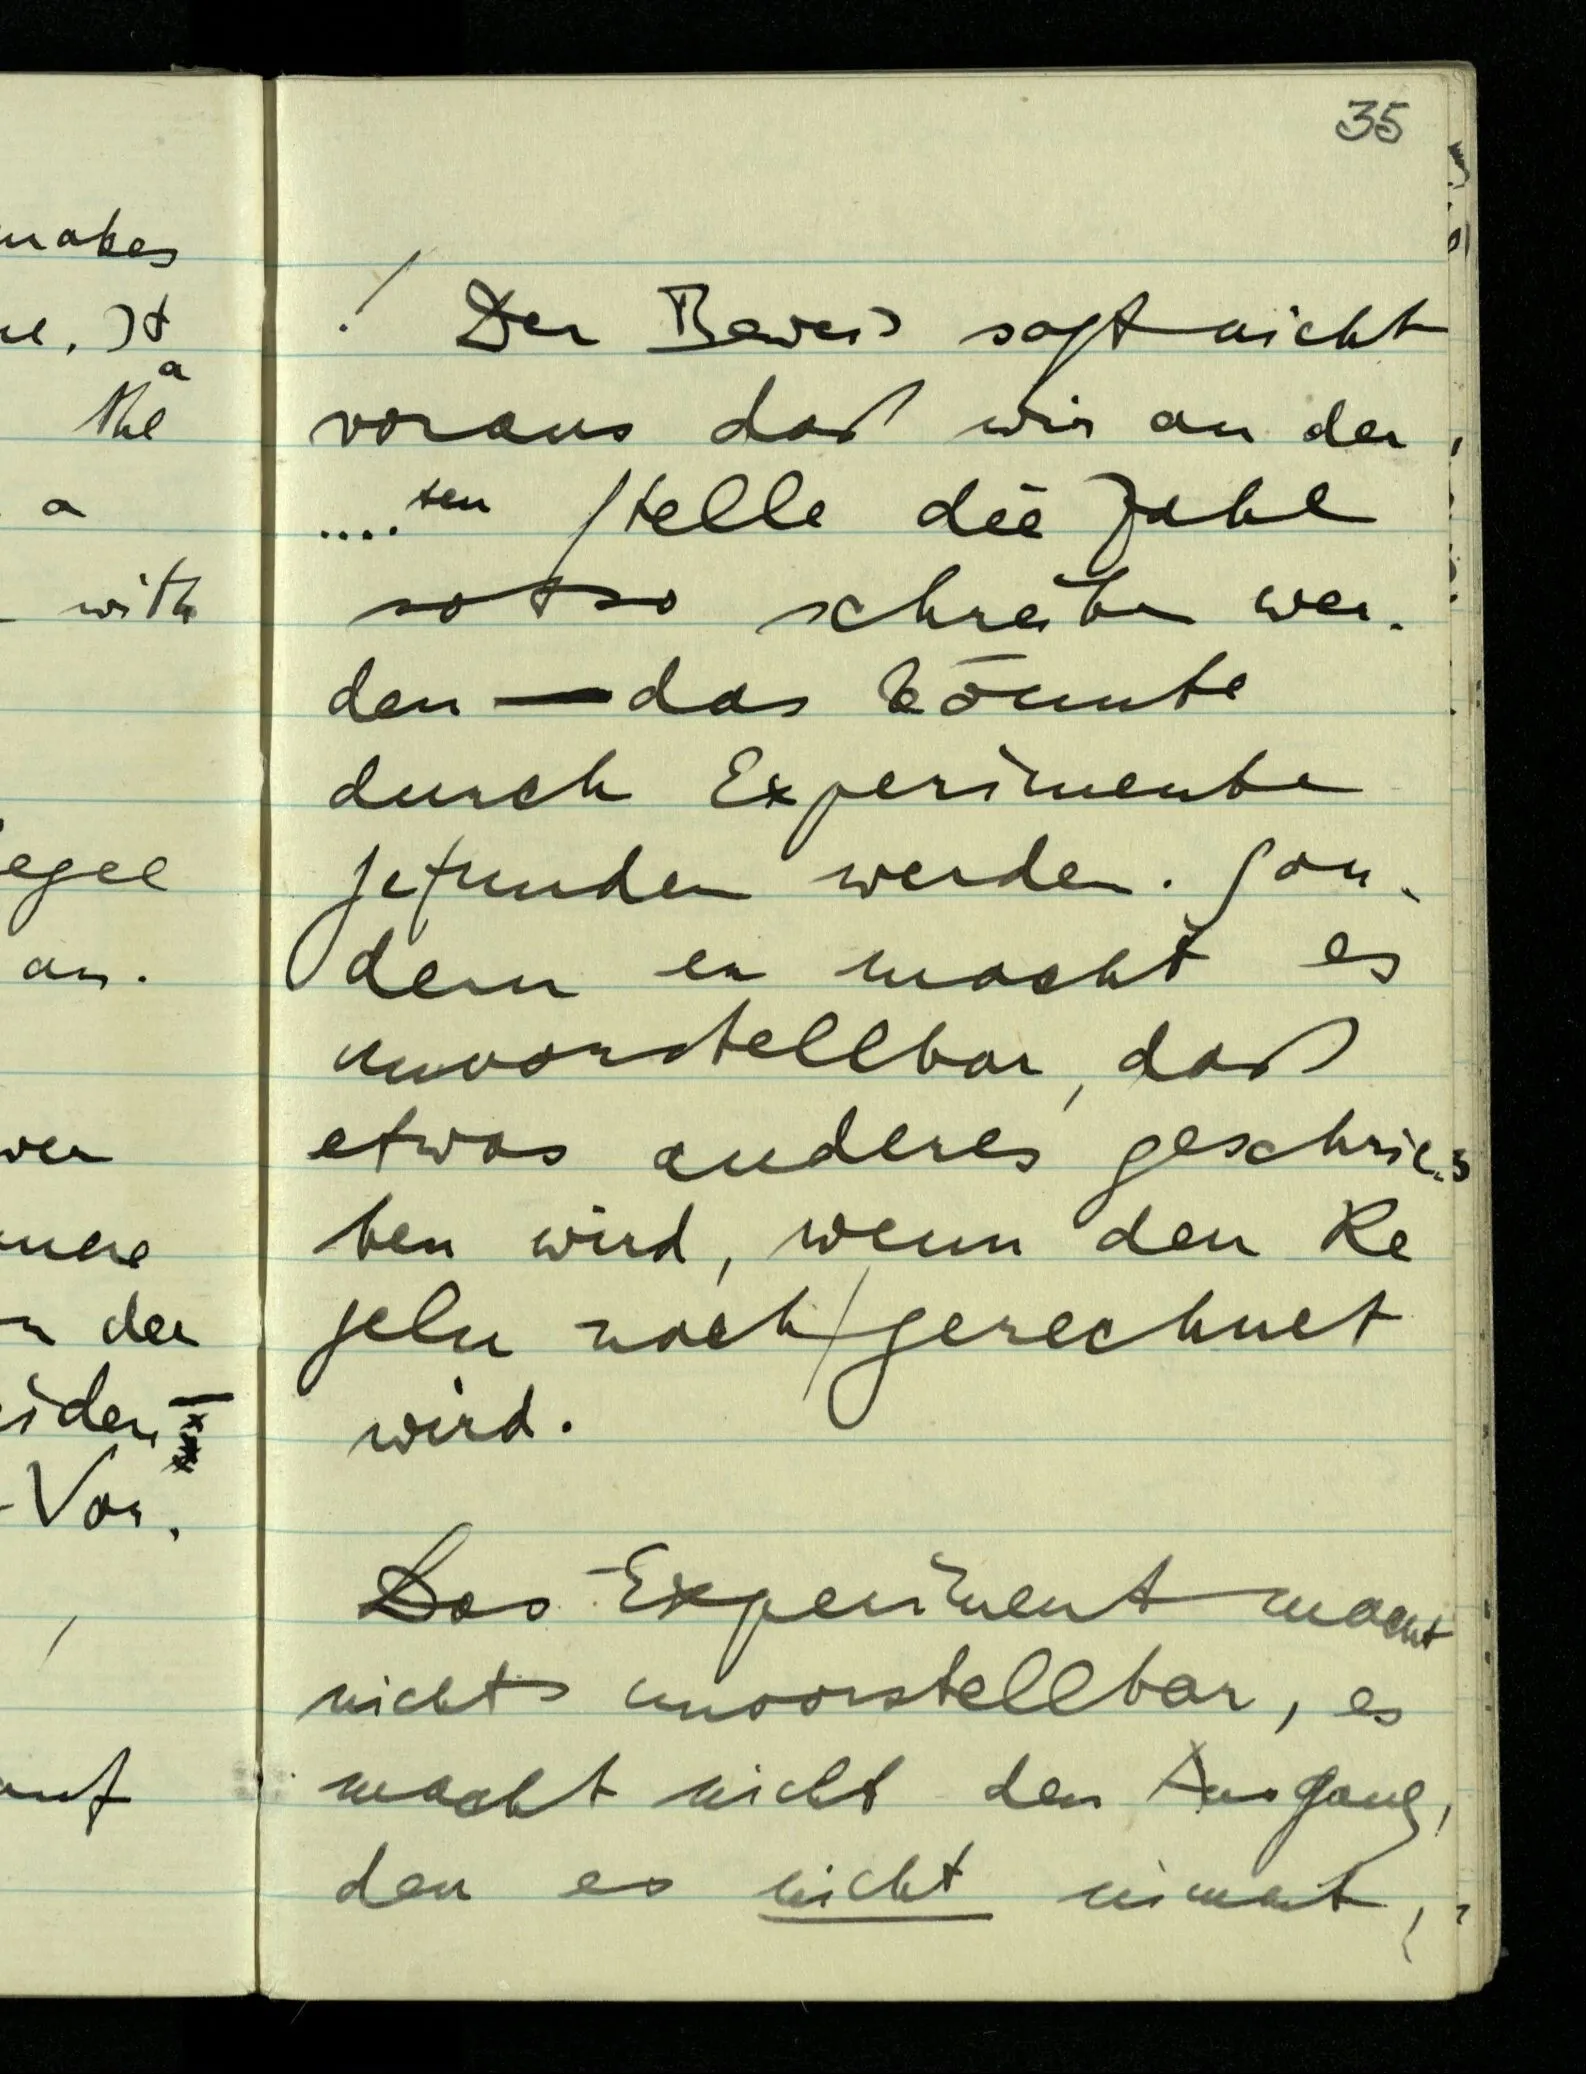 makes
It
a
the
a
with
egel
an.
nere
n der
eiden
- Vor.
auf
35
! Der Beweis sagt nicht
voraus daß wir an der
....ten Stelle die Zahl
so + so schreiben wer-
den — das könnte
durch Experimente
gefunden werden. Son-
dern er macht es
unvorstellbar, daß
etwas anderes geschrie-
ben wird, wenn den Re
geln nach/gerechnet
wird.
Das Experiment macht
nichts unvorstellbar, es
macht nicht den Ausgang,
den es nicht nimmt,